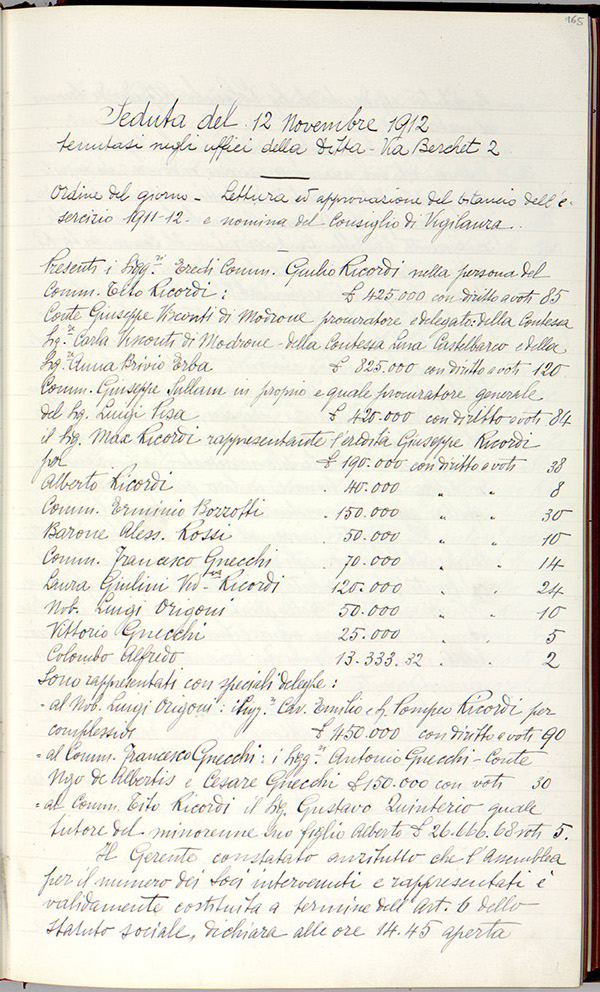 165
Seduta del 12 Novembre 1912
tenutasi negli uffici della Ditta - Via Berchet 2
Ordine del giorno - Lettura ed approvazione del bilancio dell'e-
sercizio 1911-12 - e nomina del Consiglio di Vigilanza.
Presenti i Sigg.ri Eredi Comm. Giulio Ricordi nella persona del
Comm. Tito Ricordi: £ 425.000 con diritto a voti 85
Conte Giuseppe Visconti di Modrone procuratore e delegato: della Contessa
Sig.ra Carla Visconti di Modrone - della Contessa Lina Castelbarco e della
Sig.ra Anna Brivio Erba £ 825.000 con diritto a voti 120
Comm. Giuseppe Sullam in proprio e quale procuratore generale
del Sig. Luigi Pisa £ 420.000 con diritto a voti 84
il Sig. Max Ricordi rappresentante l'eredità Giuseppe Ricordi
per £ 190.000 con diritto a voti 38
Alberto Ricordi . 40.000 " " 8
Comm. Erminio Bozzotti . 150.000 " " 30
Barone Aless. Rossi . 50.000 " " 10
Comm. Francesco Gnecchi . 70.000 " " 14
Laura Giulini Ved.va Ricordi 120.000 " " 24
Nob. Luigi Origoni 50.000 " " 10
Vittorio Gnecchi 25.000 . . 5
Colombo Alfredo 13.333.32 . . 2
Sono rappresentati con speciali deleghe:
- al Nob. Luigi Origoni: i Sigg.ri Cav. Emilio e Pompeo Ricordi per
complessive £ 450.000 con diritto a voti 90
= al Comm. Francesco Gnecchi: i Sigg.ri Antonio Gnecchi - Conte
Ugo de Albertis e Cesare Gnecchi £ 150.000 con voti 30
= al Comm. Tito Ricordi il Sig. Gustavo Quinterio quale
tutore del minorenne suo figlio Alberto £ 26.666.68 voti 5.
Il Gerente constatato anzitutto che l'Assemblea
per il numero dei Soci intervenuti e rappresentati è
validamente costituita a termine dell'Art. 6 dello
Statuto sociale, dichiara alle ore 14.45 aperta